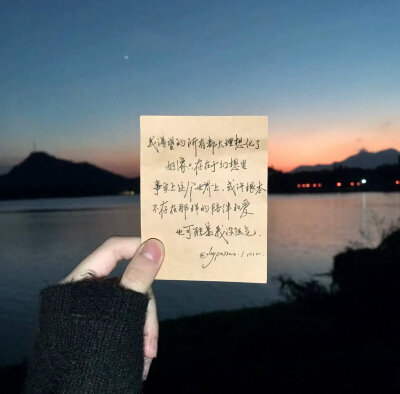 我渴望的所有都太理想化了
好像只存在于幻想里
事实上这个世界上，或许根本
不存在那样的陪伴和爱
也可能是我没遇见.